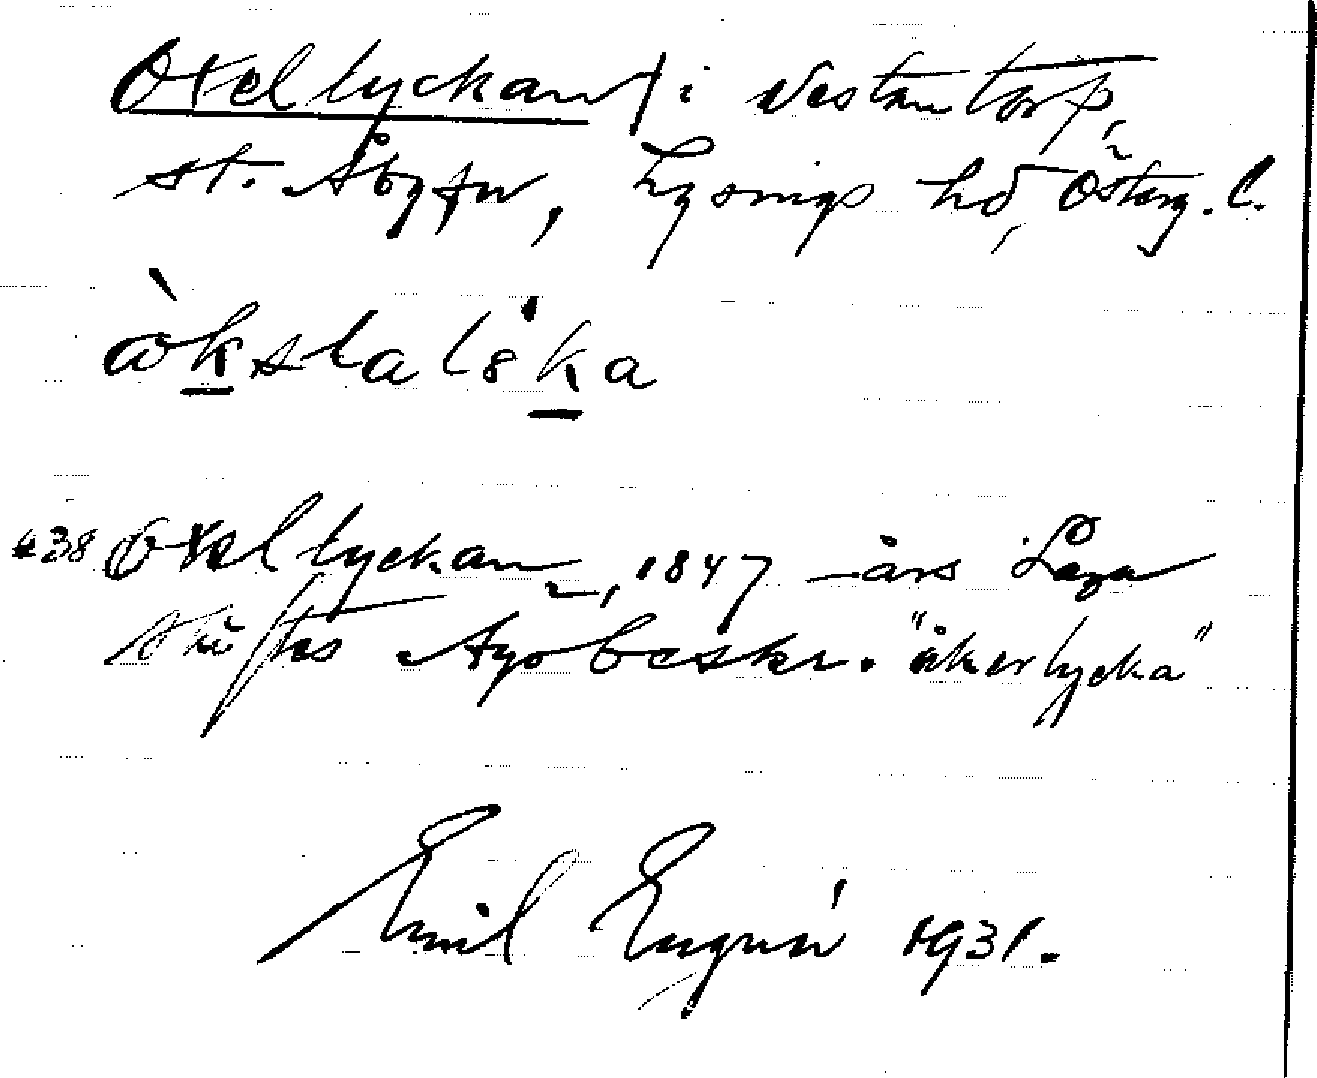 Oxellyckan/ i Västantorp,
st. Åby sn, Lysings hd, Österg. l.
638 Oxellyckan, 1847 års Laga
skiftes Ägobeskr. "åkerlycka"
Emil Engrén 1931.